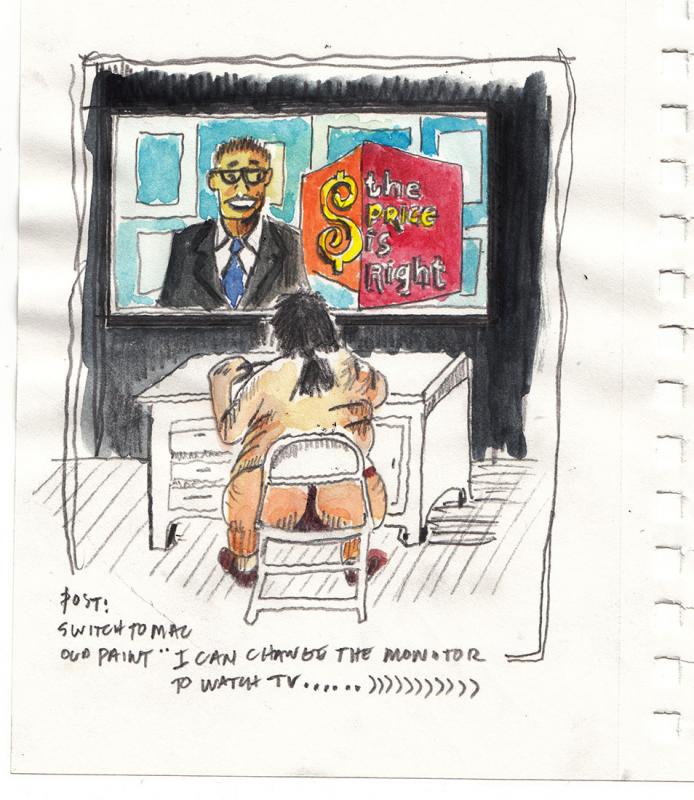 $ the
PRICE
is
Right
POST:
SWITCH TO MAC
OLD PAINT " I CAN CHANGE THE MONITOR
TO WATCH TV......)))))))))))